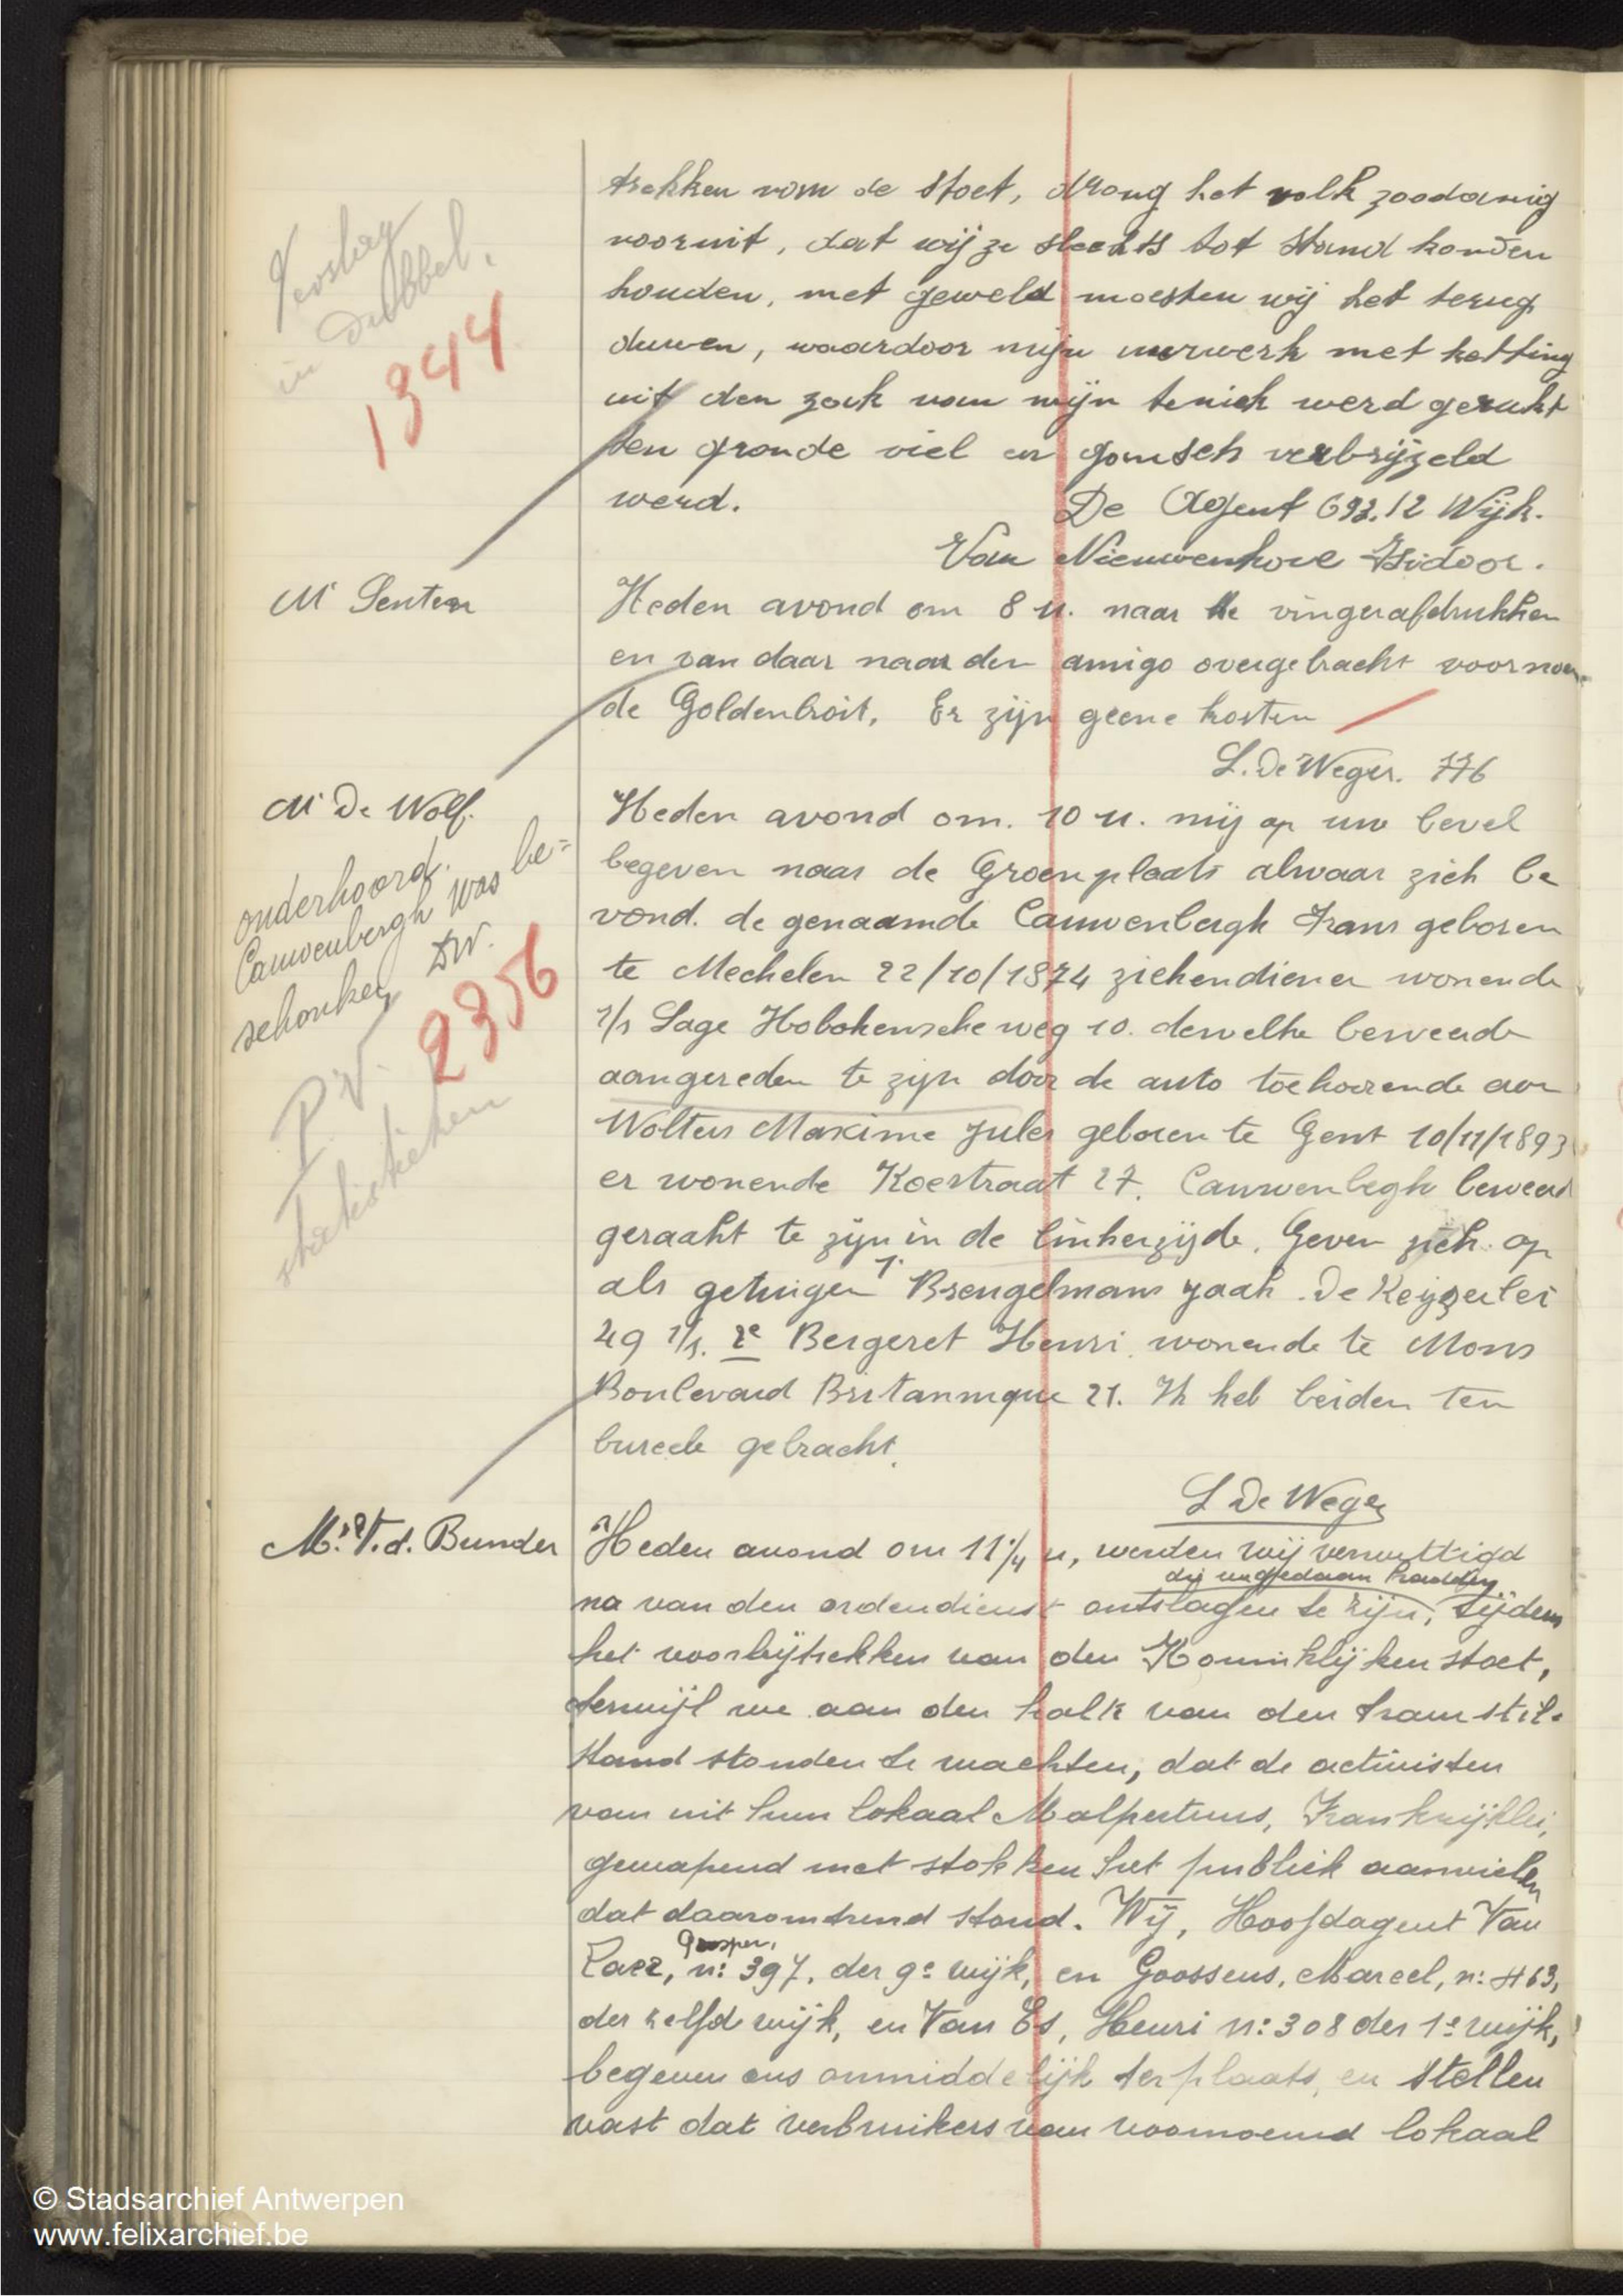 trekken vom de stoet, drong het volk zoodanig
vooruit, dat wij ze slechts tot stand konden
houden, met geweld moesten wij het terug
duwen, waardoor mijn uurwerk met ketting
uit den zack van mijn teniek werd gerukt
ten gronde viel en gansch verbrijzeld
werd. De Agent 693.12 Wijk.
Van Nieuwenhove Isidoor.
Verslag
in dubbel.
1344
Mr Senten
Heden avond om 8 u. naar de vingerafdrukken
en van daar naar den amigo overgebracht voornoem
de Goldenbroit. Er zijn geene kosten
L. De Weger. 776
Mr De Wolf.
Heden avond om. 10 u. mij op uw bevel
begeven naar de Groenplaats alwaar zich be
vond. de genaamde Cauwenbergh Frans geboren
te Mechelen 22/10/1874 ziekendiener wonende
1/s Lage Hobokensche weg 10. dewelke beweerde
aangereden te zijn door de auto toehoorende aan
Wolters Maxime Jules geboren te Gent 10/11/1893
er wonende Koestraat 27. Cauwenbegh beweerd
geraakt te zijn in de linkerzijde. Geven zich op
als getuigen 1. Brengelmans Jaak. De Keyzerlei
49 1/s. 2e Bergeret Henri wonende te Mons
Boulevard Britannique 21. Ik heb beiden ten
bureele gebracht.
L De Weger
onderhoord.
Cauwenbergh was be=
schonken DW.
2356
P.V.
statistieken
Mr. V. d. Bunder
Heden avond om 11 1/4 u, werden wij verwittigd
na van den ordendienst ontslagen te zijn, tijdens
het voorbijtrekken van den Koninklijken stoet,
terwijl we aan den halk van den tram stil-
stand stonden te wachten, dat de activisten
van uit hun lokaal Malpertuus, Frankrijklei,
gewapend met stokken het publiek aanvielen
dat daaromtrend stond. Wij, Hoofdagent Van
Laer, Prosper, n: 397, der 9e wijk, en Goossens, Marcel, n: 463,
der zelfde wijk, en Van Es, Henri n: 308 der 1e wijk,
begeven ons onmiddelijk ter plaats, en stellen
vast dat verbruikers van voornoemd lokaal
© Stadsarchief Antwerpen
www.felixarchief.be